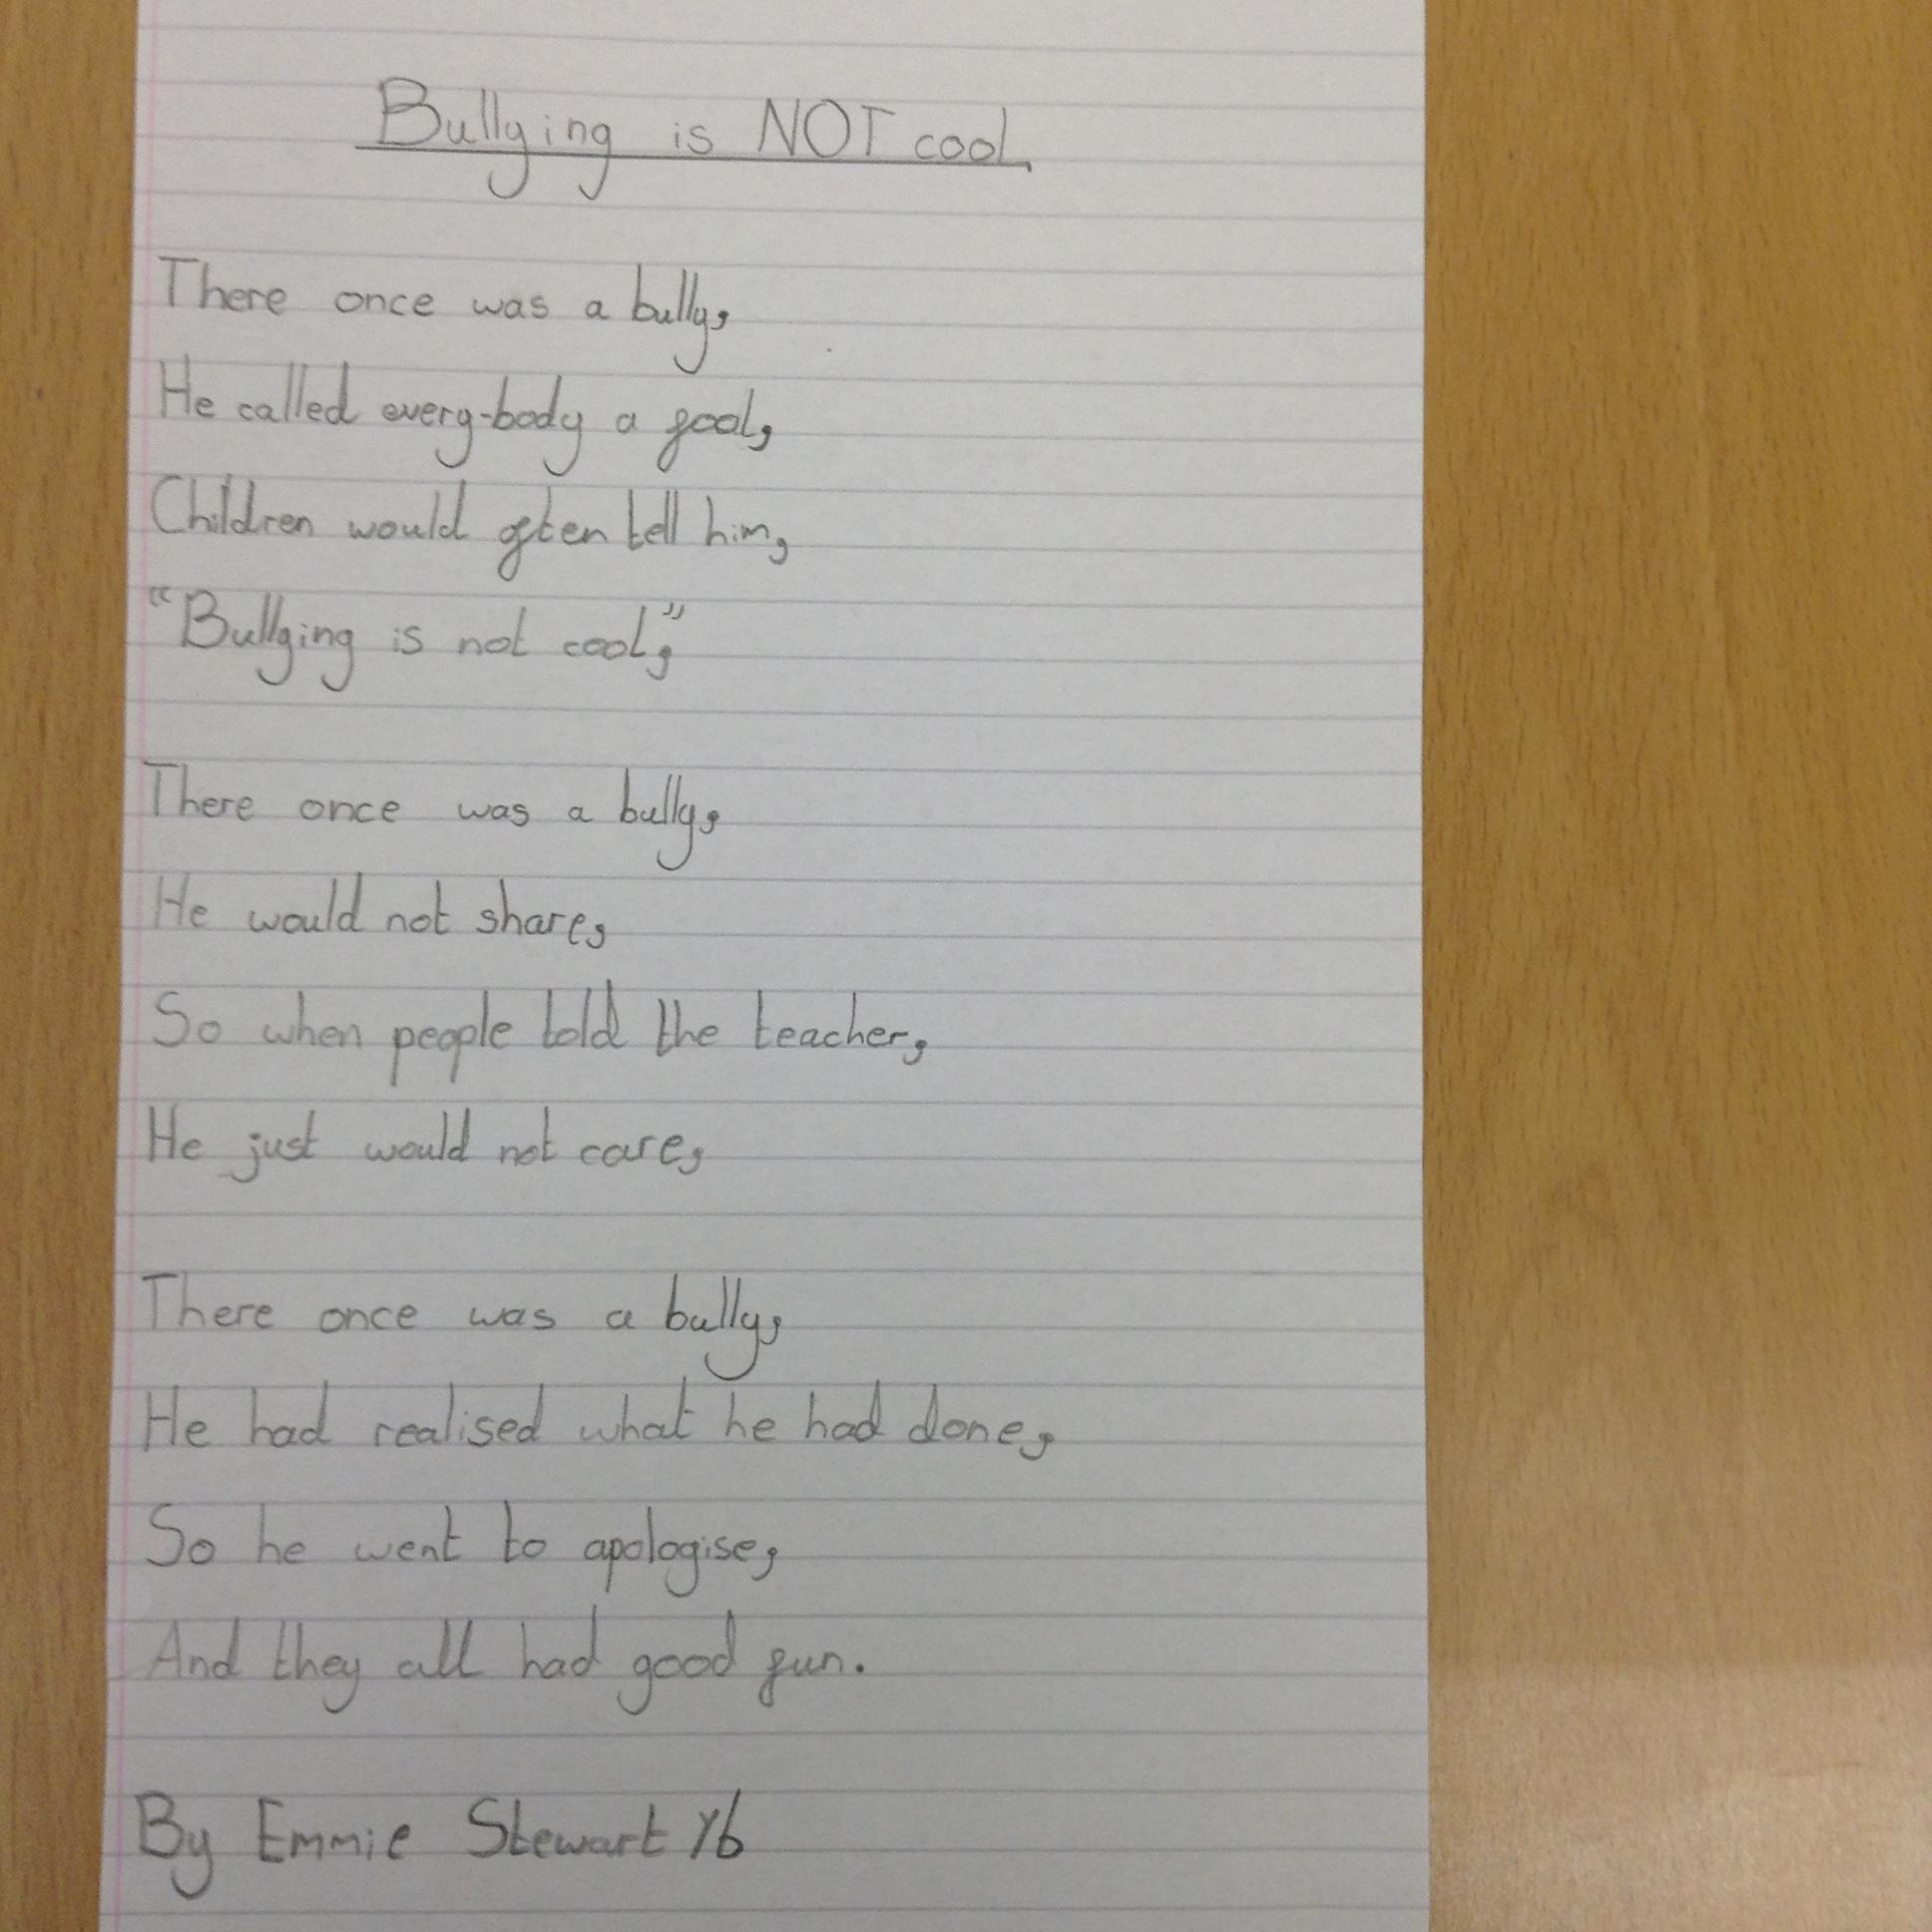 Bullying is NOT cool
There once was a bully,
He called every-body a fool,
Children would often tell him,
“Bullying is not cool,”
There once was a bully,
He would not share,
So when people told the teacher,
He just would not care,
There once was a bully,
He had realised what he had done,
So he went to apologise,
And they all had good fun.
By Emmie Stewart Y6